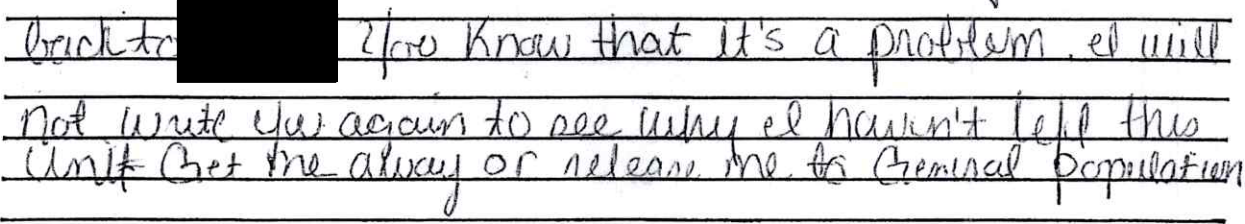 back to You Know that it's a problem. I will
not write you again to see why I haven't left this
Unit Get me away or release me to General Population